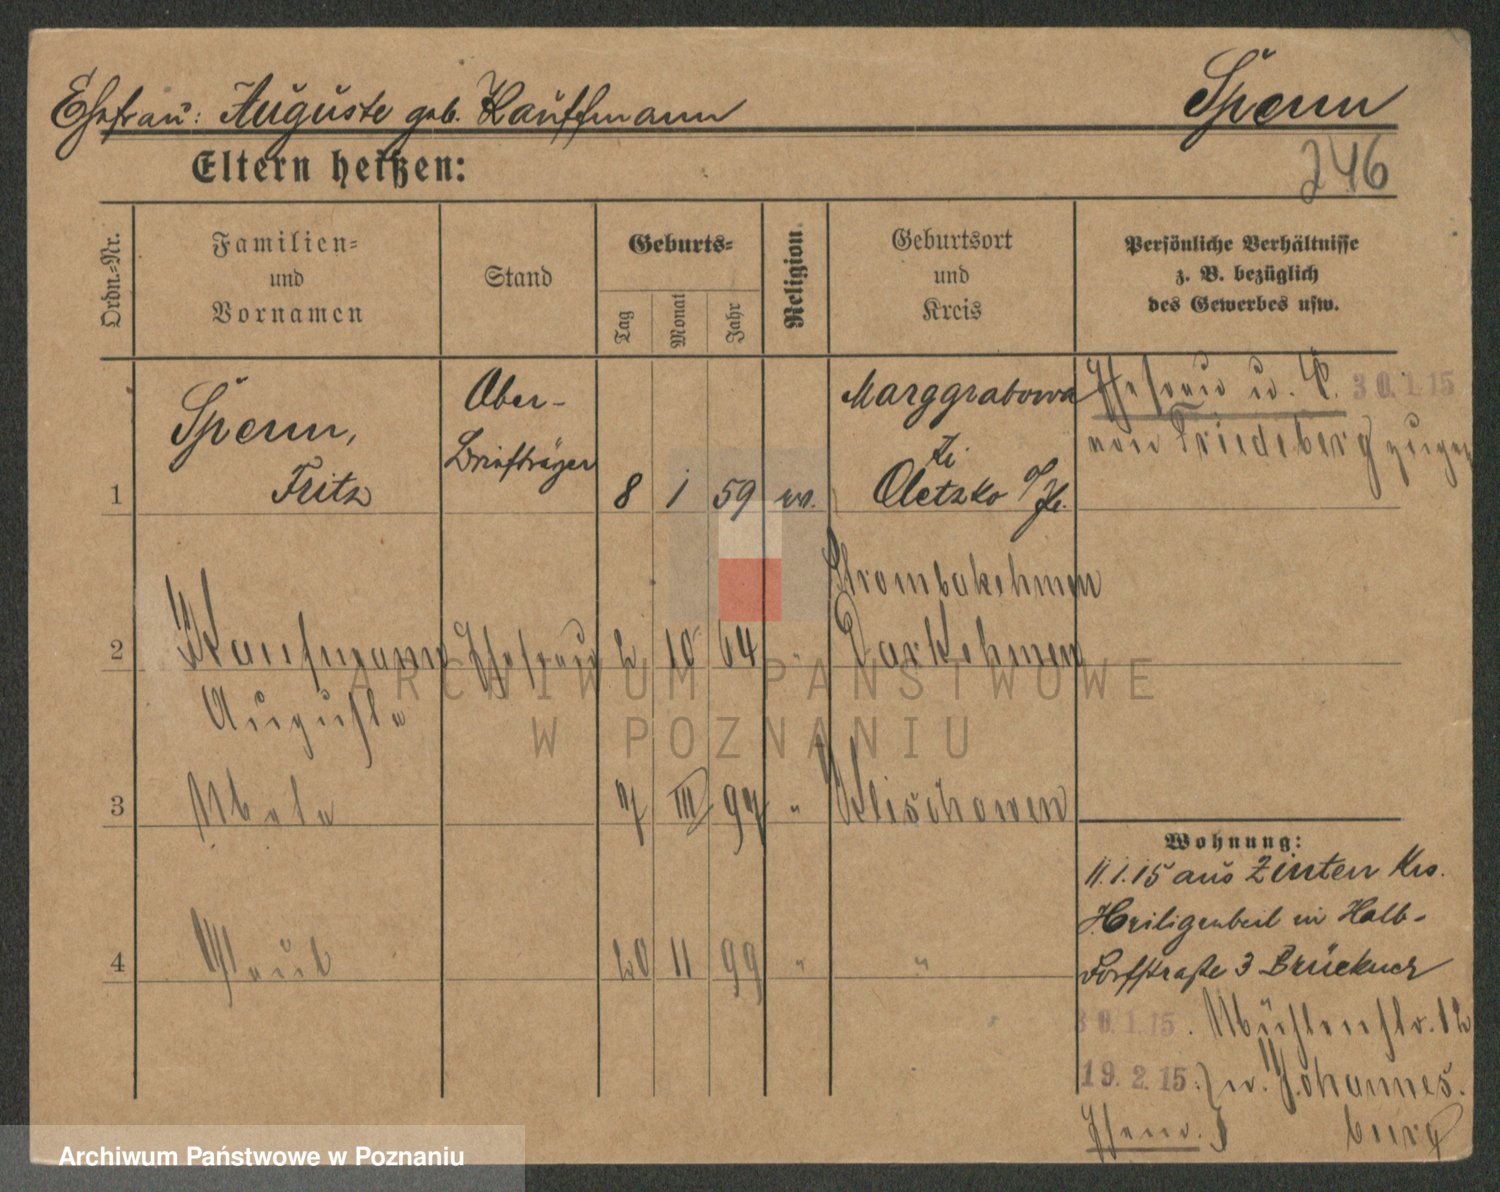 Ehefrau: Auguste geb. Kauffmann
Sperm
246
Eltern heißen:
Ordn.-Nr.
Familien-
und
Vornamen
Stand
Geburts-
Tag
Monat
Jahr
Religion.
Geburtsort
und
Kreis
Persönliche Verhältnisse
z. B. bezüglich
des Gewerbes usw.
1
Fritz
Ober-
Briefträger
8 1 59 ev.
Marggrabowa
Oletzko
Ehefrau u. 30.1.15
von Friedeberg
2
Kaufmann
Auguste
Ehefrau
2 10 64 "
Darkehmen
3
7 III 97 "
Klischowen
4
20 11 99 " "
Wohnung:
11.1.15 aus Zinten Krs.
Heiligenbeil in Halb-
dorfstraße 3 Brückner
30.1.15. Mühlenstr. 12
19.2.15. Johannes-
burg
ARCHIWUM PAŃSTWOWE
W POZNANIU
Archiwum Państwowe w Poznaniu